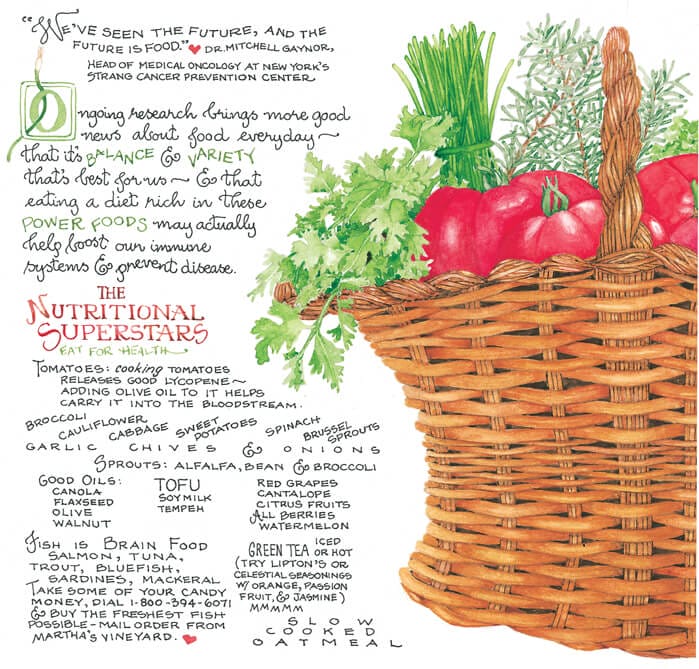 "WE'VE SEEN THE FUTURE, AND THE
FUTURE IS FOOD." ♥ DR. MITCHELL GAYNOR,
HEAD OF MEDICAL ONCOLOGY AT NEW YORK'S
STRANG CANCER PREVENTION CENTER
Ongoing research brings more good
news about food everyday ~
that it's BALANCE & VARIETY
that's best for us ~ & that
eating a diet rich in these
POWER FOODS may actually
help boost our immune
systems & prevent disease.
THE
NUTRITIONAL
SUPERSTARS
EAT FOR HEALTH
TOMATOES: cooking TOMATOES
RELEASES GOOD LYCOPENE ~
ADDING OLIVE OIL TO IT HELPS
CARRY IT INTO THE BLOODSTREAM.
BROCCOLI CAULIFLOWER CABBAGE SWEET POTATOES SPINACH BRUSSEL SPROUTS
GARLIC CHIVES & ONIONS
SPROUTS: ALFALFA, BEAN & BROCCOLI
GOOD OILS:
CANOLA
FLAXSEED
OLIVE
WALNUT
TOFU
SOY MILK
TEMPEH
RED GRAPES
CANTALOPE
CITRUS FRUITS
ALL BERRIES
WATERMELON
FISH IS BRAIN FOOD
SALMON, TUNA,
TROUT, BLUEFISH,
SARDINES, MACKERAL
TAKE SOME OF YOUR CANDY
MONEY, DIAL 1-800-394-6071
& BUY THE FRESHEST FISH
POSSIBLE - MAIL ORDER FROM
MARTHA'S VINEYARD. ♥
GREEN TEA ICED OR HOT
(TRY LIPTON'S OR
CELESTIAL SEASONINGS
W/ ORANGE, PASSION
FRUIT, & JASMINE)
MMMMM
SLOW
COOKED
OATMEAL